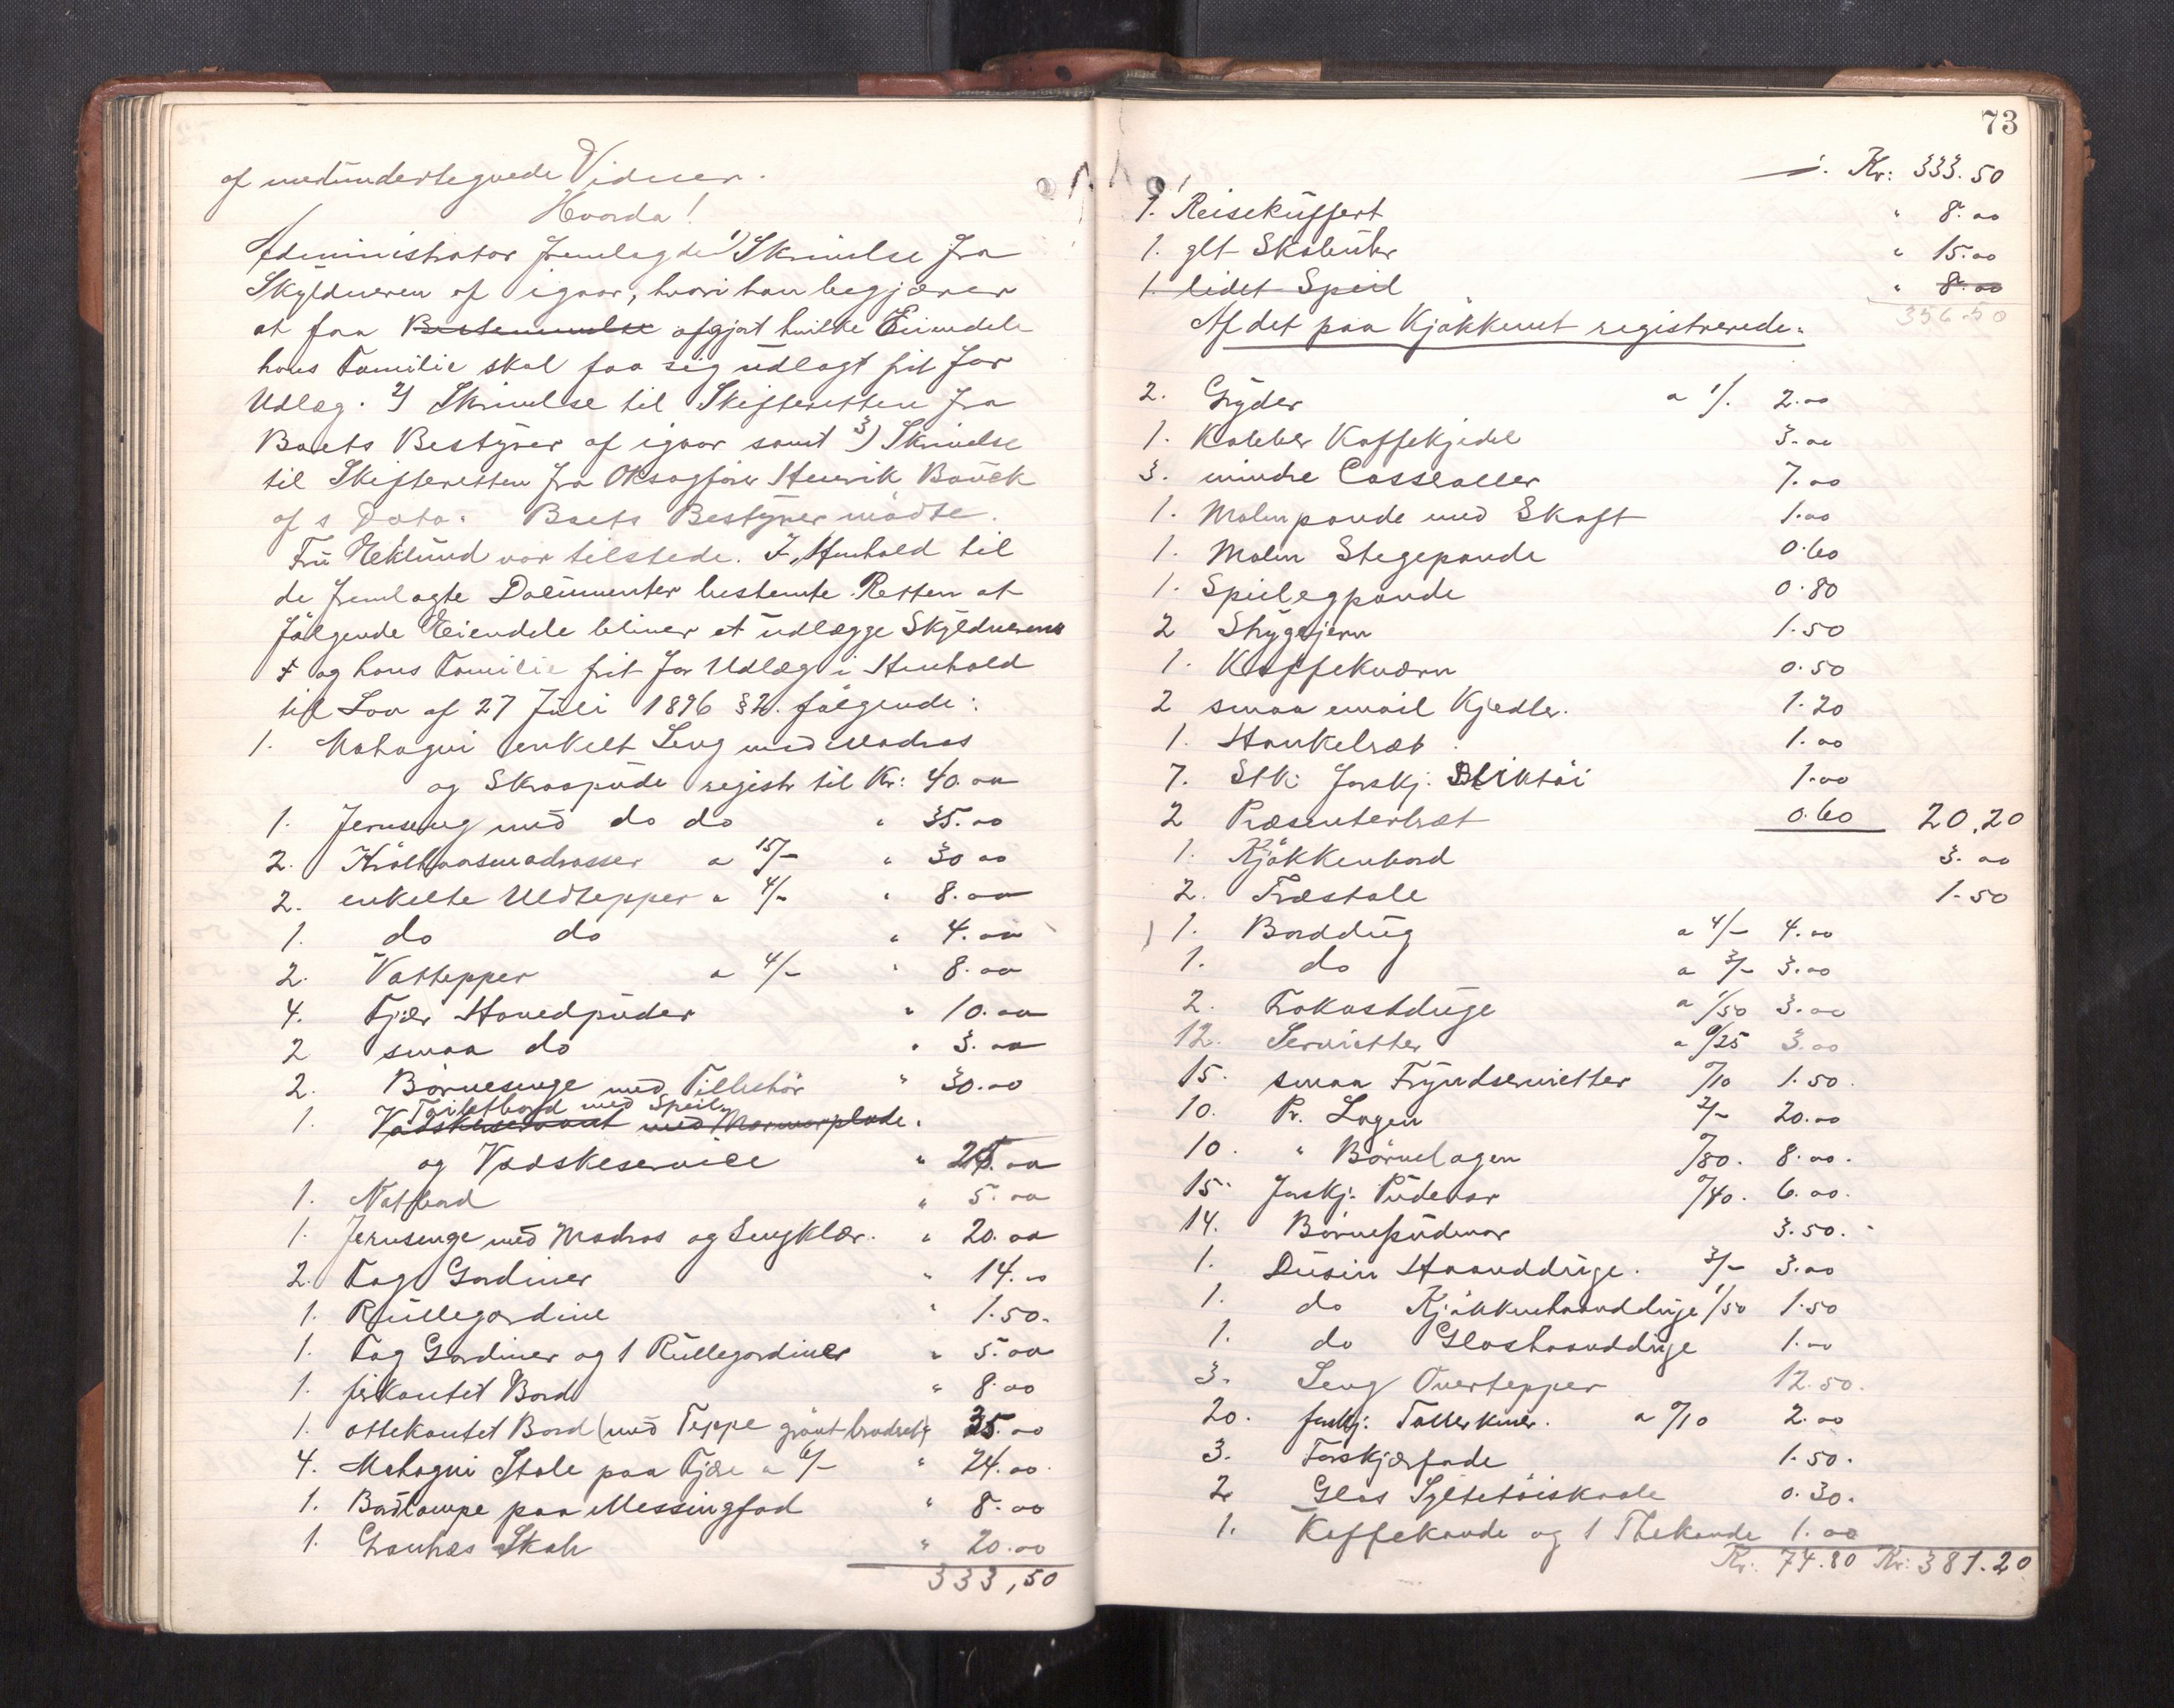 af medundertegnede Vidner.
Hvorda!
Administrator fremlagde 1) Skrivelse fra
Skyldneren af igaar, hvori han begjærer
at faa Bestemmelse afgjort hvilke Eiendele
hans Familie skal faa sig udlagt frit for
Udlæg. 2) Skrivelse til Skifteretten fra
Boets Bestyrer af igaar samt 3) Skrivelse
til Skifteretten fra OKsagfører Henrik Bauck
af s Dato. Boets Bestyrer mødte.
Fru Eklund var tilstede. I Henhold til
de fremlagte Documenter bestemte Retten at
følgende Eiendele bliver at udlægge Skyldneren
og hans Familie frit for Udlæg i Henhold
til Lov af 27 Juli 1896 § 2. følgende:
1. Mahogni enkelt Seng med Madras
og Skraapude registr til Kr: 40.00
1. Jernseng med do do " 35.00
2. Krølhaarsmadrasser a 15/- " 30 00
2. enkelte Uldtepper a 4/- " 8.00
1. do do " 4.00
2. Vattepper a 4/- " 8.00
4. Fjær Hovedpuder " 10.00
2 smaa do " 3.00
2. Børnesenge med Tilbehør " 30.00
Toiletbord med Speil
1. Vadskeservant med Marmorplade.
og Vadskeservice " 25.00
1. Natbord " 5.00
1. Jernsenge med Madras og Sengklær. " 20.00
2. Fag Gardiner " 14.00
1. Rullegardine " 1.50.
1. Fag Gardiner og 1 Rullegardiner " 5.00
1. firkantet Bord " 8.00
1. ottekantet Bord (med Teppe grønt broderet) 35.00
4. Mahogni Stole paa Fjær a 6/- " 24.00
1. Bordlampe paa Messingfod " 8.00
1. Skab " 20.00
333,50
73
Kr: 333.50
1. Reisekuffert " 8.00
1. glt Skab " 15.00
1. lidet Speil " 8.00
356.50
Af det paa Kjøkkenet registrerede:
2. Gryder a 1/. 2.00
1. Kobber Kaffekjedel 3.00
3. mindre Casseroller 7.00
1. Malmpande med Skaft 1.00
1. Malm Stegepande 0.60
1. Speilegpande 0.80
2 Strygejern 1.50
1. Kaffekværn 0.50
2 smaa email Kjedler. 1.20
1. 1.00
7. Stk: forskj. Bliktøi 1.00
2 Præsenterbræt 0.60 20,20
1. Kjøkkenbord 3.00
2. Træstole 1.50
1. Borddug a 4/- 4.00
1. do a 3/- 3.00
2. Frokostduge a 1/50 3.00
12. Servietter a 0/25 3.00
15. smaa Fryndservietter 0/10 1.50.
10. Pr. Lagen 2/- 20.00
10. " Børnelagen 0/80. 8.00.
15. forskj. Pudevar 0/40. 6.00.
14. Børnepudevar 3.50.
1. Dusin Haandduge. 3/- 3.00
1. do Kjøkkenhaandduge 1/50 1.50
1. do Glashaandduge 1.00
3. Seng Overtepper 12.50.
20. forskj. Tallerkener. a 0/10 2.00
3. Forskjærfade 1.50.
2 Glas Syltetøiskaale 0.30.
1. Kaffekande og 1 Thekande 1.00
Kr. 74.80 Kr: 381.20